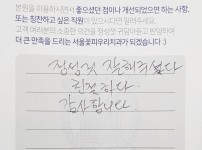 본원을 이용하시면서 좋으셨던 점이나 개선되었으면 하는 사항,
또는 칭찬하고 싶은 직원이 있으시다면 알려주세요.
고객 여러분의 소중한 의견을 정성껏 귀담아듣고 반영하여
더 큰 만족을 드리는 서울꽃피우리치과가 되겠습니다 :)
정성껏 잘해주셨다
친절하다
감사합니다.